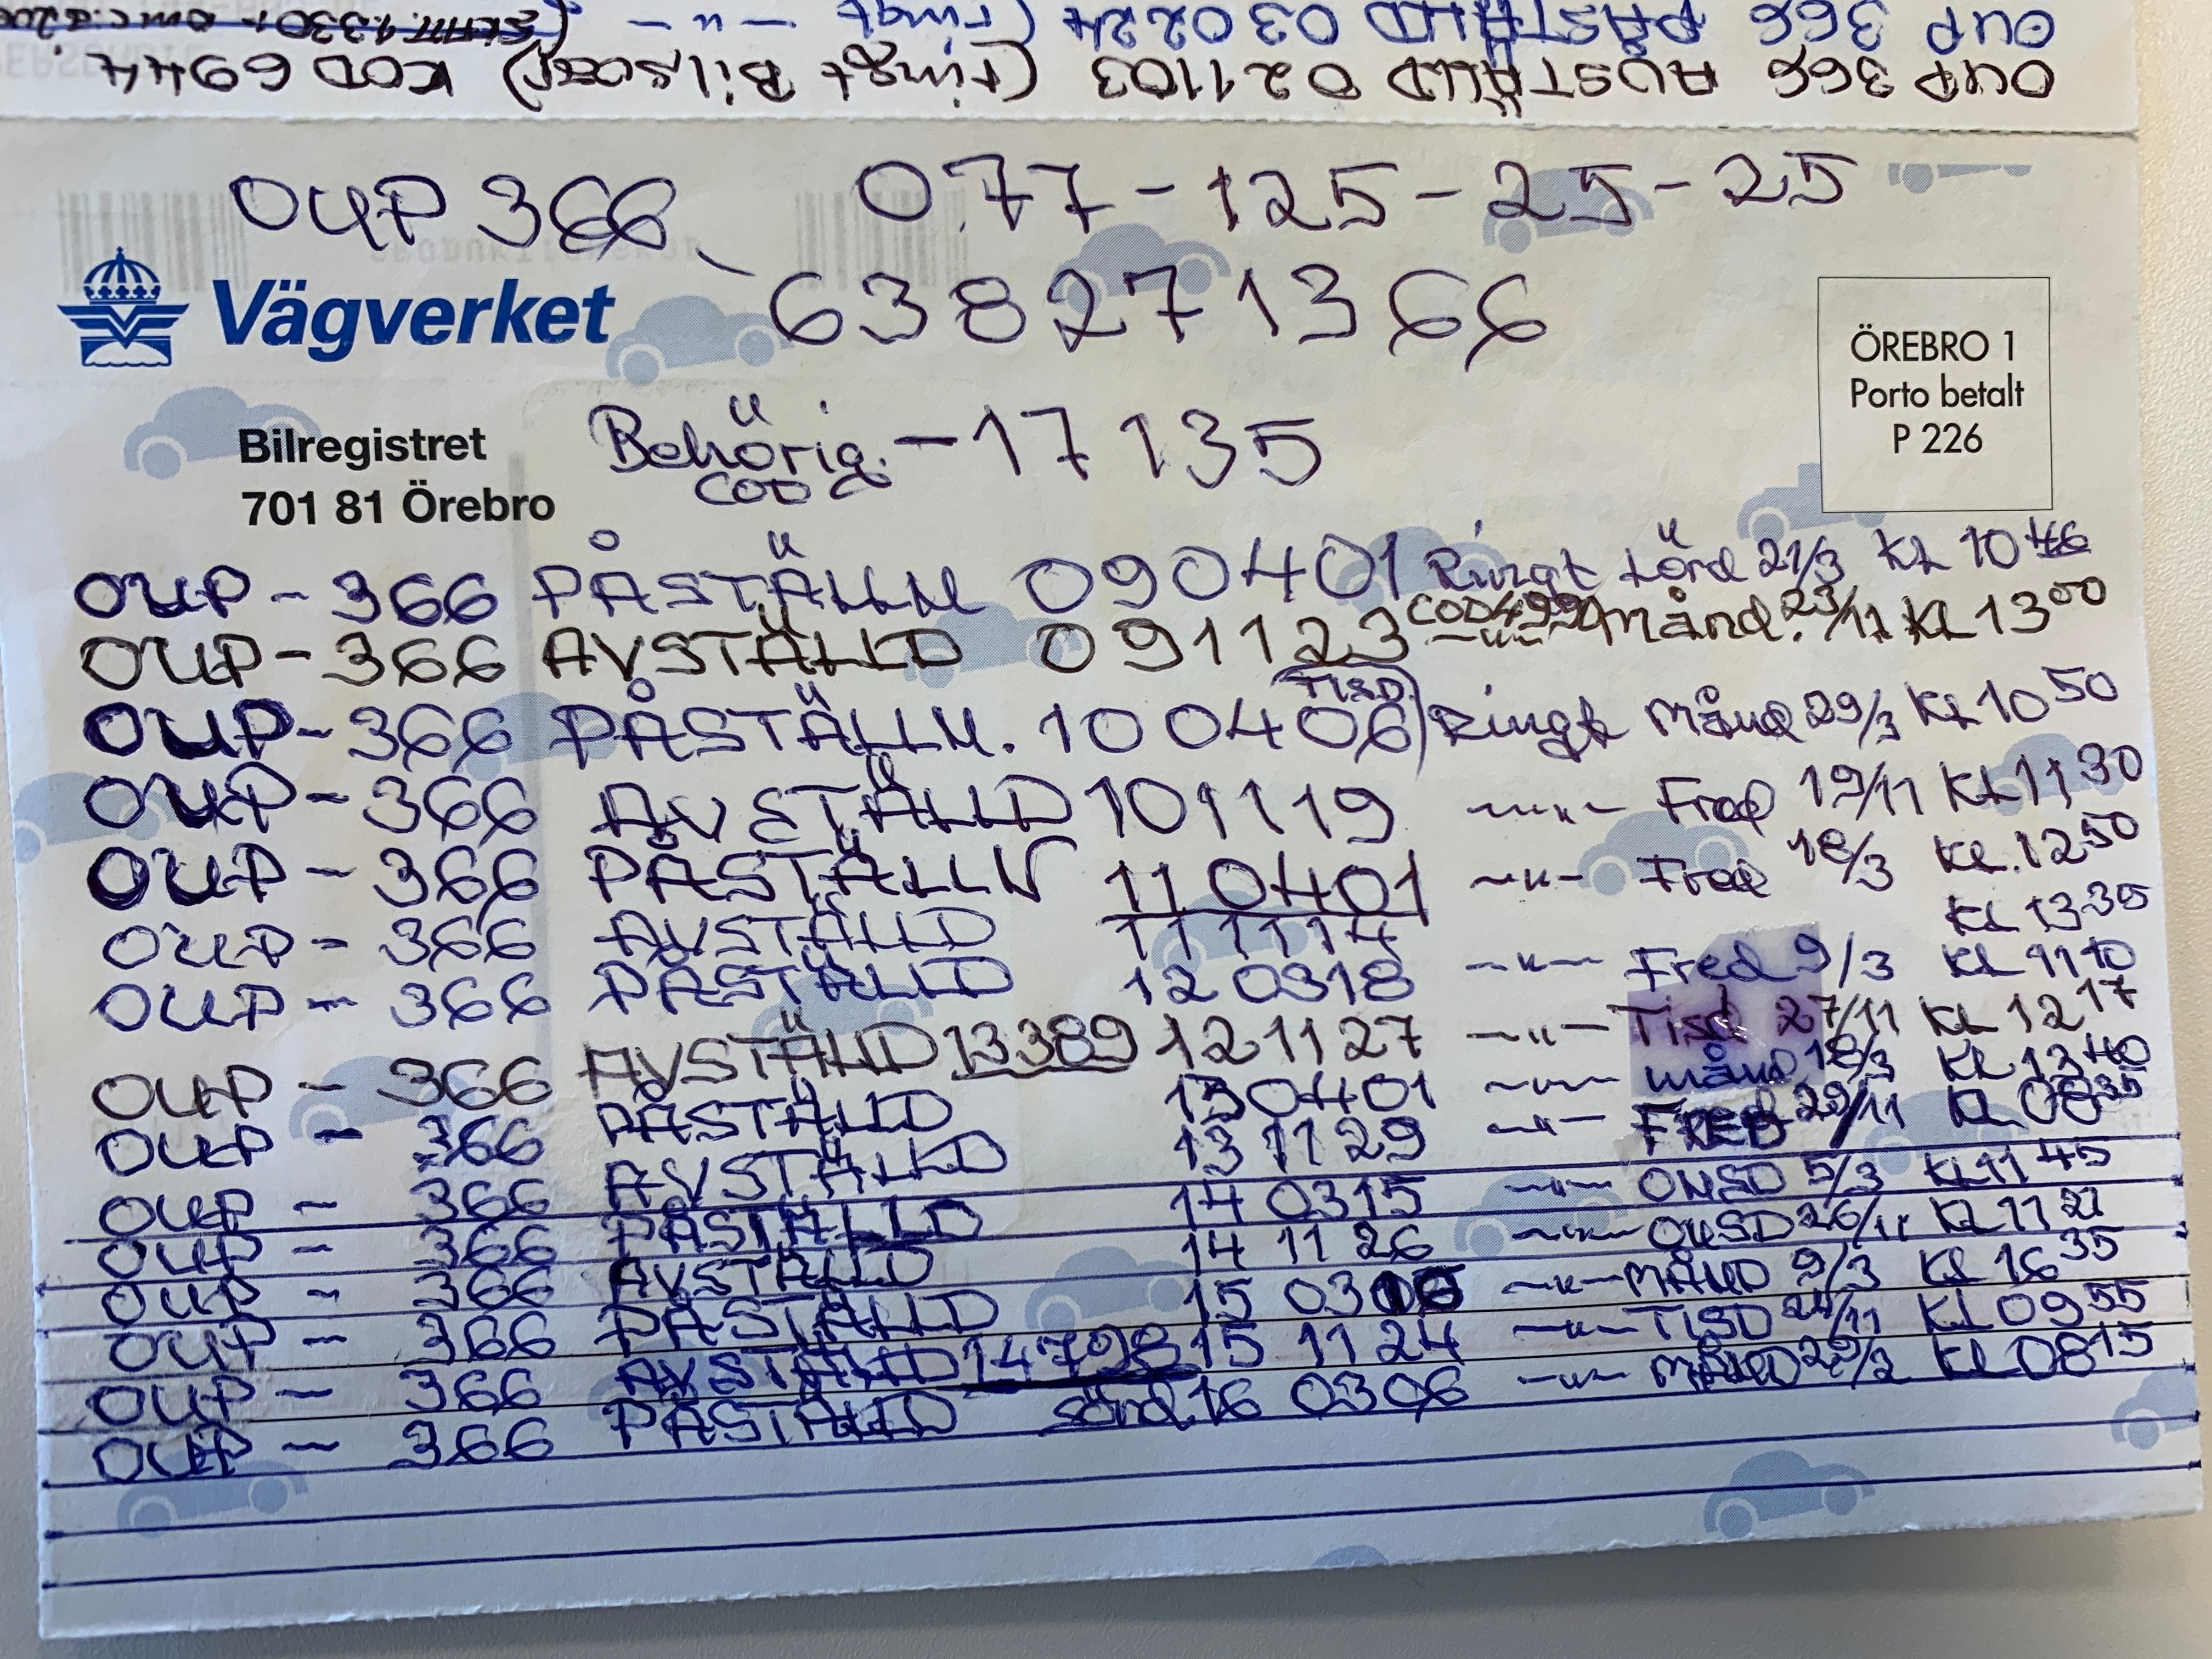 OUP 366 PÅSTÄLLD 030224 (ringt — u —
OUP 366 AVSTÄLLD 021103 (ringt Bilsocer) KOD 6944.
OUP 366 077-125-25-25
Vägverket 638271366
ÖREBRO 1
Porto betalt
P 226
Bilregistret Behörig. - 17135
COD
701 81 Örebro
OUP - 366 PÅSTÄLLN 090401 Ringt Lörd 21/3 KL 10 46
OUP - 366 AVSTÄLLD 091123 COD 499 — u — Månd. 23/11 KL 13 00
OUP - 366 PÅSTÄLLN. 100406 (TISD.) Ringt Månd 29/3 KL 10 50
OUP - 366 AVSTÄLLD 101119 — u — Fred 19/11 KL 11 30
OUP - 366 PÅSTÄLLN 110401 — u — Fred 18/3 KL. 12 50
OUP - 366 AVSTÄLLD 111114 KL 13 35
OUP - 366 PÅSTÄLLD 120318 — u — Fred 9/3 KL 11 10
OUP - 366 AVSTÄLLD 13389 121127 — u — Tisd 27/11 KL 12 17
OUP - 366 PÅSTÄLLD 130401 — u — månd 18/3 KL 12 40
OUP - 366 AVSTÄLLD 13 11 29 — u — FRED 29/11 KL 08 35
OUP - 366 PÅSTÄLLD 14 0315 — u — ONSD 5/3 KL 11 45
OUP - 366 AVSTÄLLD 14 11 26 — u — ONSD 26/11 KL 11 21
OUP - 366 PÅSTÄLLD 15 03 — u — MÅND 9/3 KL 16 35
OUP - 366 AVSTÄLLD 14798 15 11 24 — u — TISD 24/11 KL 09 55
OUP - 366 PÅSTÄLLD sönd. 16 0306 — u — MÅND 29/2 KL 08 15